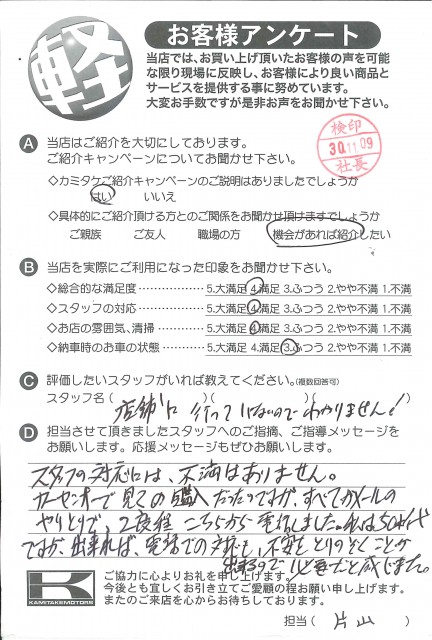 軽
お客様アンケート
当店では、お買い上げ頂いたお客様の声を可能
な限り現場に反映し、お客様により良い商品と
サービスを提供する事に努めています。
大変お手数ですが是非お声をお聞かせ下さい。
検印
30.11.09
社長
A 当店はご紹介を大切にしております。
ご紹介キャンペーンについてお聞かせ下さい。
◇カミタケご紹介キャンペーンのご説明はありましたでしょうか
はい いいえ
◇具体的にご紹介頂ける方とのご関係をお聞かせ頂けますでしょうか
ご親族 ご友人 職場の方 機会があれば紹介したい
B 当店を実際にご利用になった印象をお聞かせ下さい。
◇総合的な満足度 5.大満足 4.満足 3.ふつう 2.やや不満 1.不満
◇スタッフの対応 5.大満足 4.満足 3.ふつう 2.やや不満 1.不満
◇お店の雰囲気、清掃 5.大満足 4.満足 3.ふつう 2.やや不満 1.不満
◇納車時のお車の状態 5.大満足 4.満足 3.ふつう 2.やや不満 1.不満
C 評価したいスタッフがいれば教えてください。(複数回答可)
スタッフ名( )( )( )
店舗に行っていないのでわかりません!
D 担当させて頂きましたスタッフへのご指摘、ご指導メッセージを
お願いします。応援メッセージもぜひお願いします。
スタッフの対応には、不満はありません。
カーセンサーで見ての購入だったのですが、すべてがメールの
やりとりで、2度程こちらから電話しました。私は50代
ですが、出来れば、電話での対応も、不安をとりのぞくことが
出来るので必要だと感じました。
K
KAMITAKEMOTORS
ご協力に心よりお礼を申し上げます。
今後とも宜しくお引き立てご愛顧の程お願い申し上げます。
またのご来店を心からお待ちしております。
担当( 片山 )